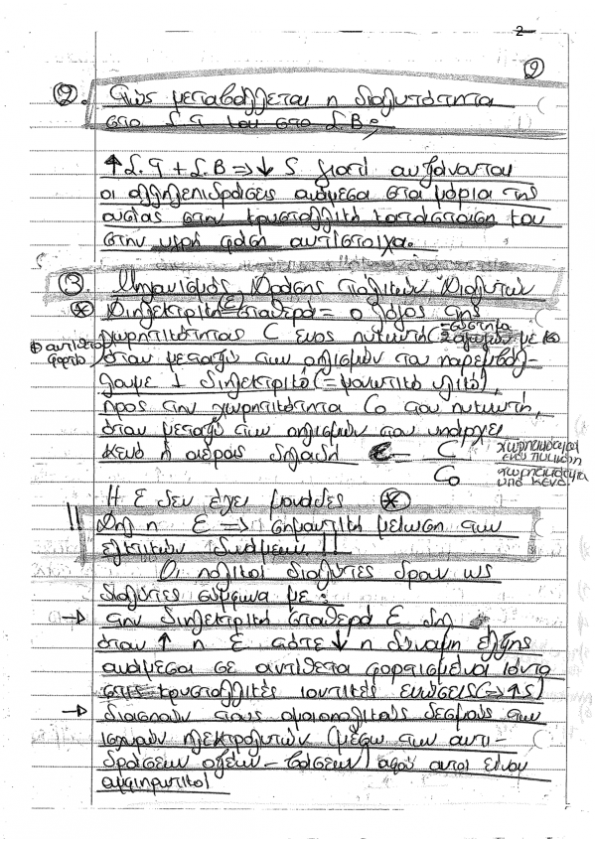 2
②
②. Πώς μεταβάλλεται η διαλυτότητα
στο Σ.Τ του στο Σ.Β;
↑Σ.Τ + Σ.Β => ↓ S γιατί αυξάνονται
οι αλληλεπιδράσεις ανάμεσα στα μόρια της
ουσίας στην κρυσταλλική κατάσταση του
στην υγρή φάση αντίστοιχα.
③. Μηχανισμός Δράσης πολικών Διαλυτών
⊛ Διηλεκτρική (ε) σταθερά = ο λόγος της
χωρητικότητας C ενος πυκνωτή (=σύστημα 2 αγωγών με
⊕ αντίθετο φορτίο
όταν μεταξύ των οπλισμών του παρεμβάλ-
λουμε 1 διηλεκτρικό (=μονωτικό υλικό),
προς την χωρητικότητα Co του πυκνωτή,
όταν μεταξύ των οπλισμών του υπάρχει
κενό ή αέρας δηλαδή ε = C χωρητικότητα ενός πυκνωτή
Co χωρητικότητα υπό κενό
Η ε δεν έχει μονάδες ⊛
!! Δηλ η ε => σημαντική μείωση των
ελκτικών δυνάμεων !!
Οι πολικοί διαλύτες δρουν ως
διαλύτες σύμφωνα με :
→ την διηλεκτρική σταθερά ε δηλ
όταν ↑ η ε τότε ↓ η δύναμη έλξης
ανάμεσα σε αντίθετα φορτισμένα ιόντα
στις κρυσταλλικές ιοντικές ενώσεις (=> ↑S)
→ διασπούν τους ομοιοπολικούς δεσμούς των
ισχυρών ηλεκτρολυτών (μέσω των αντι-
δράσεων οξέων - βάσεων) αφού αυτοί είναι
αμφιπρωτικοί